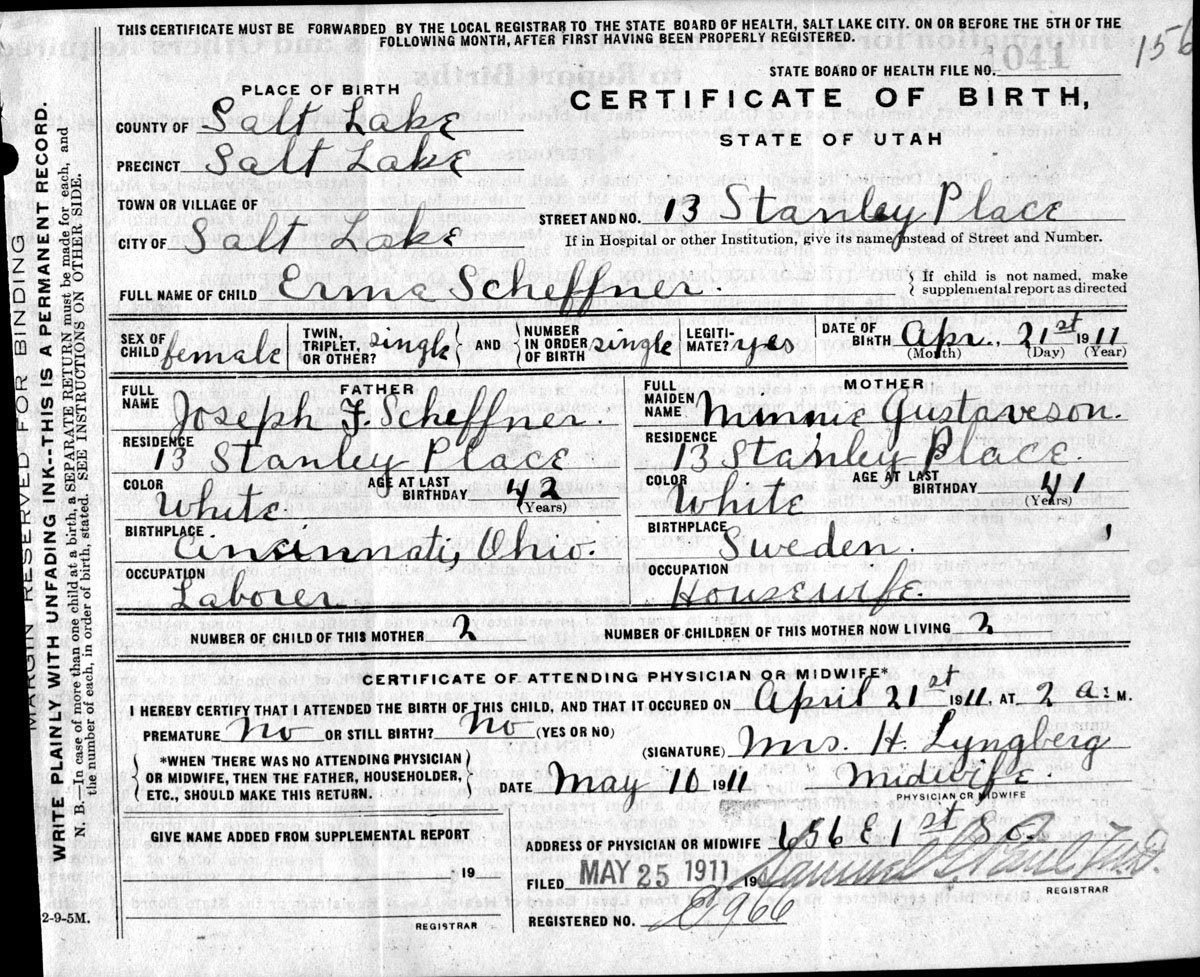 THIS CERTIFICATE MUST BE FORWARDED BY THE LOCAL REGISTRAR TO THE STATE BOARD OF HEALTH, SALT LAKE CITY. ON OR BEFORE THE 5TH OF THE
FOLLOWING MONTH, AFTER FIRST HAVING BEEN PROPERLY REGISTERED.
156
STATE BOARD OF HEALTH FILE NO. 1041
PLACE OF BIRTH
CERTIFICATE OF BIRTH,
STATE OF UTAH
COUNTY OF Salt Lake
PRECINCT Salt Lake
TOWN OR VILLAGE OF
STREET AND NO. 13 Stanley Place
CITY OF Salt Lake
If in Hospital or other Institution, give its name instead of Street and Number.
FULL NAME OF CHILD Erma Scheffner.
{ If child is not named, make
supplemental report as directed
SEX OF CHILD female
TWIN, TRIPLET, OR OTHER? single } AND { NUMBER IN ORDER OF BIRTH single
LEGITI- MATE? yes
DATE OF BIRTH Apr., 21st 1911
(Month) (Day) (Year)
FATHER
FULL NAME Joseph F. Scheffner.
RESIDENCE 13 Stanley Place
COLOR White AGE AT LAST BIRTHDAY 42 (Years)
BIRTHPLACE Cincinnati, Ohio.
OCCUPATION Laborer
MOTHER
FULL MAIDEN NAME Minnie Gustaveson.
RESIDENCE 13 Stanley Place.
COLOR White AGE AT LAST BIRTHDAY 41 (Years)
BIRTHPLACE Sweden.
OCCUPATION Housewife.
NUMBER OF CHILD OF THIS MOTHER 2 NUMBER OF CHILDREN OF THIS MOTHER NOW LIVING 2
CERTIFICATE OF ATTENDING PHYSICIAN OR MIDWIFE*
I HEREBY CERTIFY THAT I ATTENDED THE BIRTH OF THIS CHILD, AND THAT IT OCCURED ON April 21st 1911, AT 2 a. M.
PREMATURE No OR STILL BIRTH? No (YES OR NO)
(SIGNATURE) Mrs. H. Lyngberg
{ *WHEN THERE WAS NO ATTENDING PHYSICIAN
OR MIDWIFE, THEN THE FATHER, HOUSEHOLDER,
ETC., SHOULD MAKE THIS RETURN. }
DATE May 10 1911 Midwife.
PHYSICIAN OR MIDWIFE
GIVE NAME ADDED FROM SUPPLEMENTAL REPORT
19
REGISTRAR
ADDRESS OF PHYSICIAN OR MIDWIFE 156 E 1st So.
FILED MAY 25 1911 19
REGISTRAR
REGISTERED NO. C966
2-9-5M.
MARGIN RESERVED FOR BINDING
WRITE PLAINLY WITH UNFADING INK--THIS IS A PERMANENT RECORD.
N. B.—In case of more than one child at a birth, a SEPARATE RETURN must be made for each, and
the number of each, in order of birth, stated. SEE INSTRUCTIONS ON OTHER SIDE.